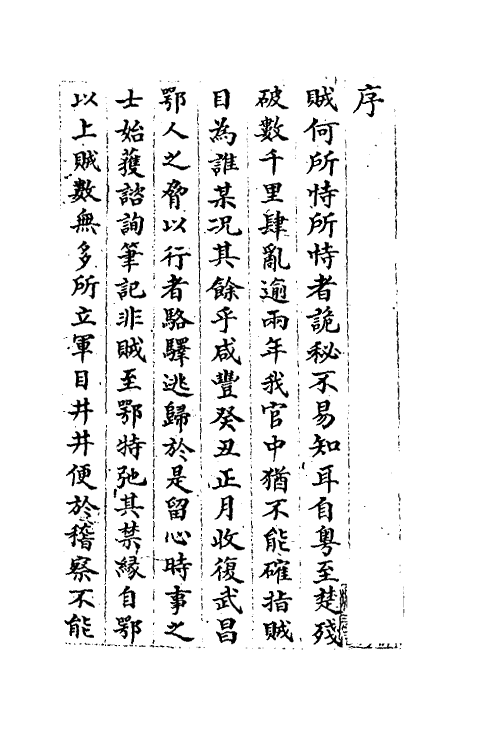 序
賊何所恃所恃者詭秘不易知耳自粵至楚殘
破數千里肆亂逾兩年我官中猶不能確指賊
目為誰某况其餘乎咸豐癸丑正月收復武昌
鄂人之脅以行者駱驛逃歸於是留心時事之
士始獲諮詢筆記非賊至鄂特弛其禁緣自鄂
以上賊數無多所立軍目井井便於稽察不能